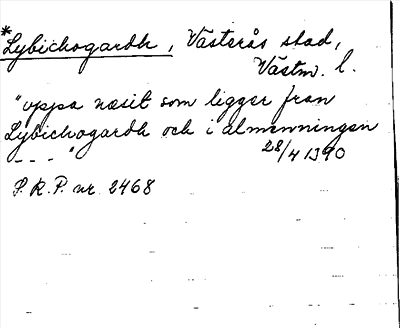 *Lybichogardh, Västerås stad,
Västm. l.
"uppa næsit som ligger fran
Lybichogardh och i almenningen
- - - "
28/4 1390
S.R.P. nr. 2468